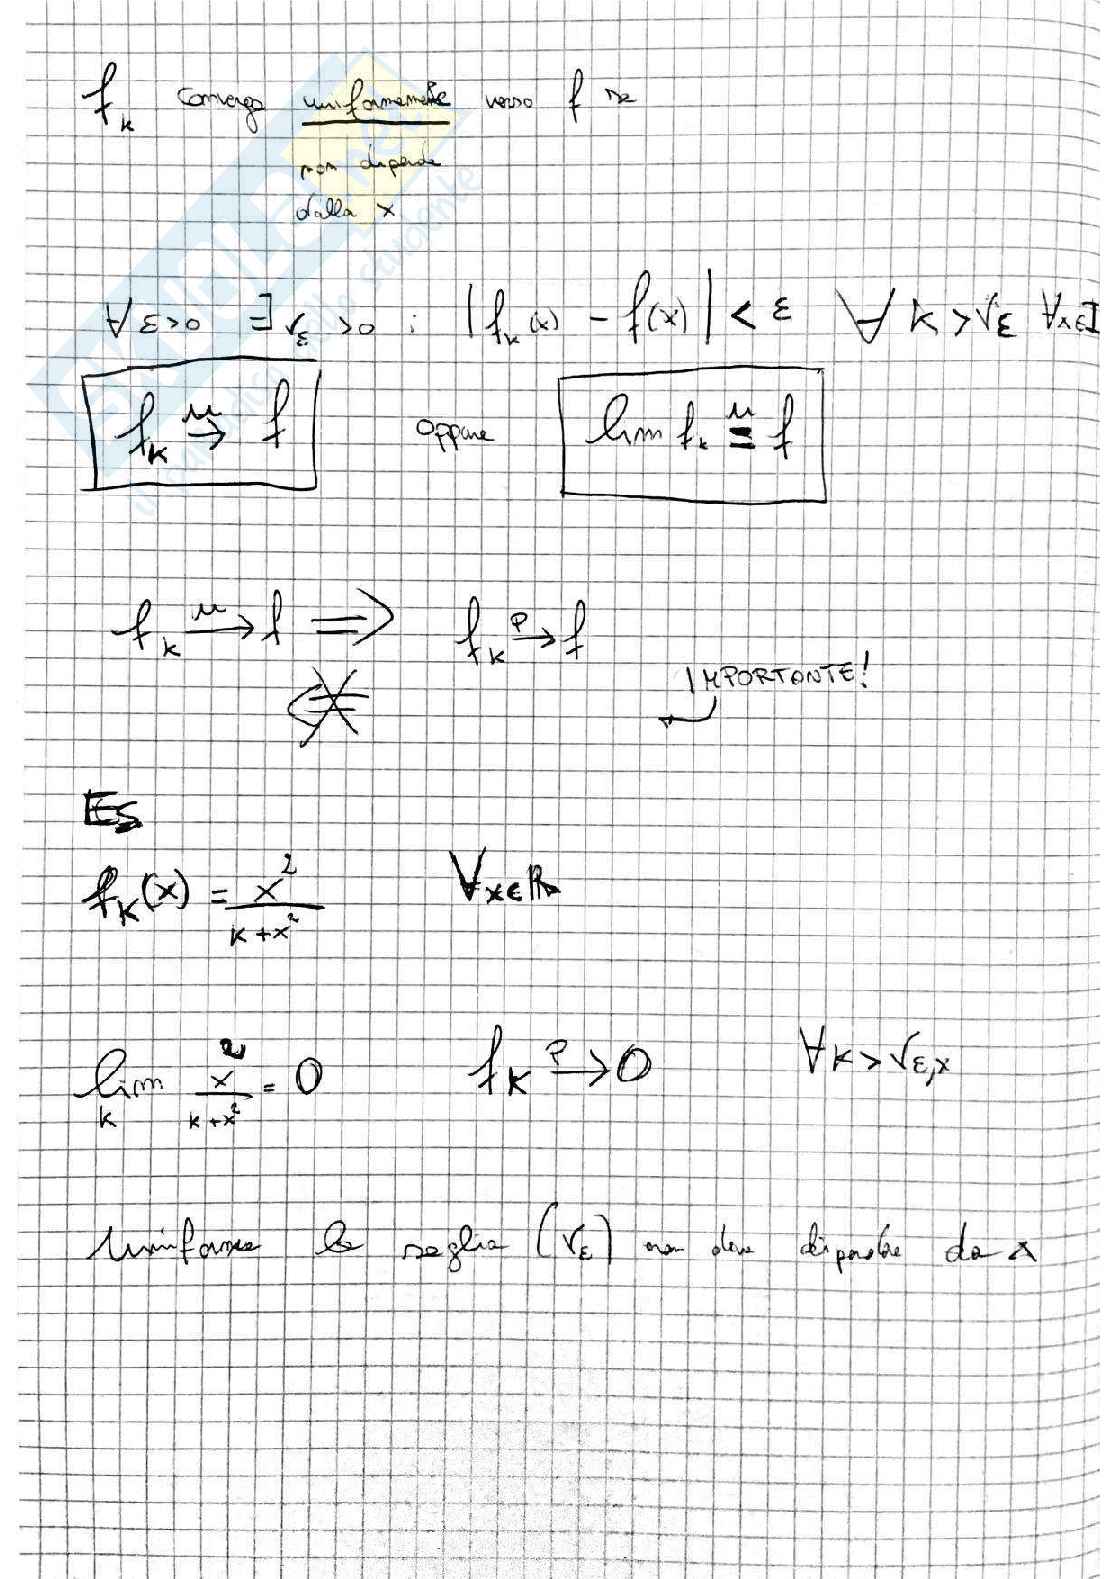 f_k converge uniformemente verso f se
non dipende
dalla x
∀ε>0 ∃ν_ε>0 : |f_k(x) - f(x)| < ε ∀k>ν_ε ∀x∈I
f_k →^u f oppure lim f_k =^u f
f_k →^u f ⇒ f_k →^p f
⇍
IMPORTANTE!
Es
f_k(x) = x²/(k+x²) ∀x∈ℝ
lim_k x²/(k+x²) = 0 f_k →^p 0 ∀k>ν_ε,x
Uniforme la soglia (ν_ε) non deve dipendere da x